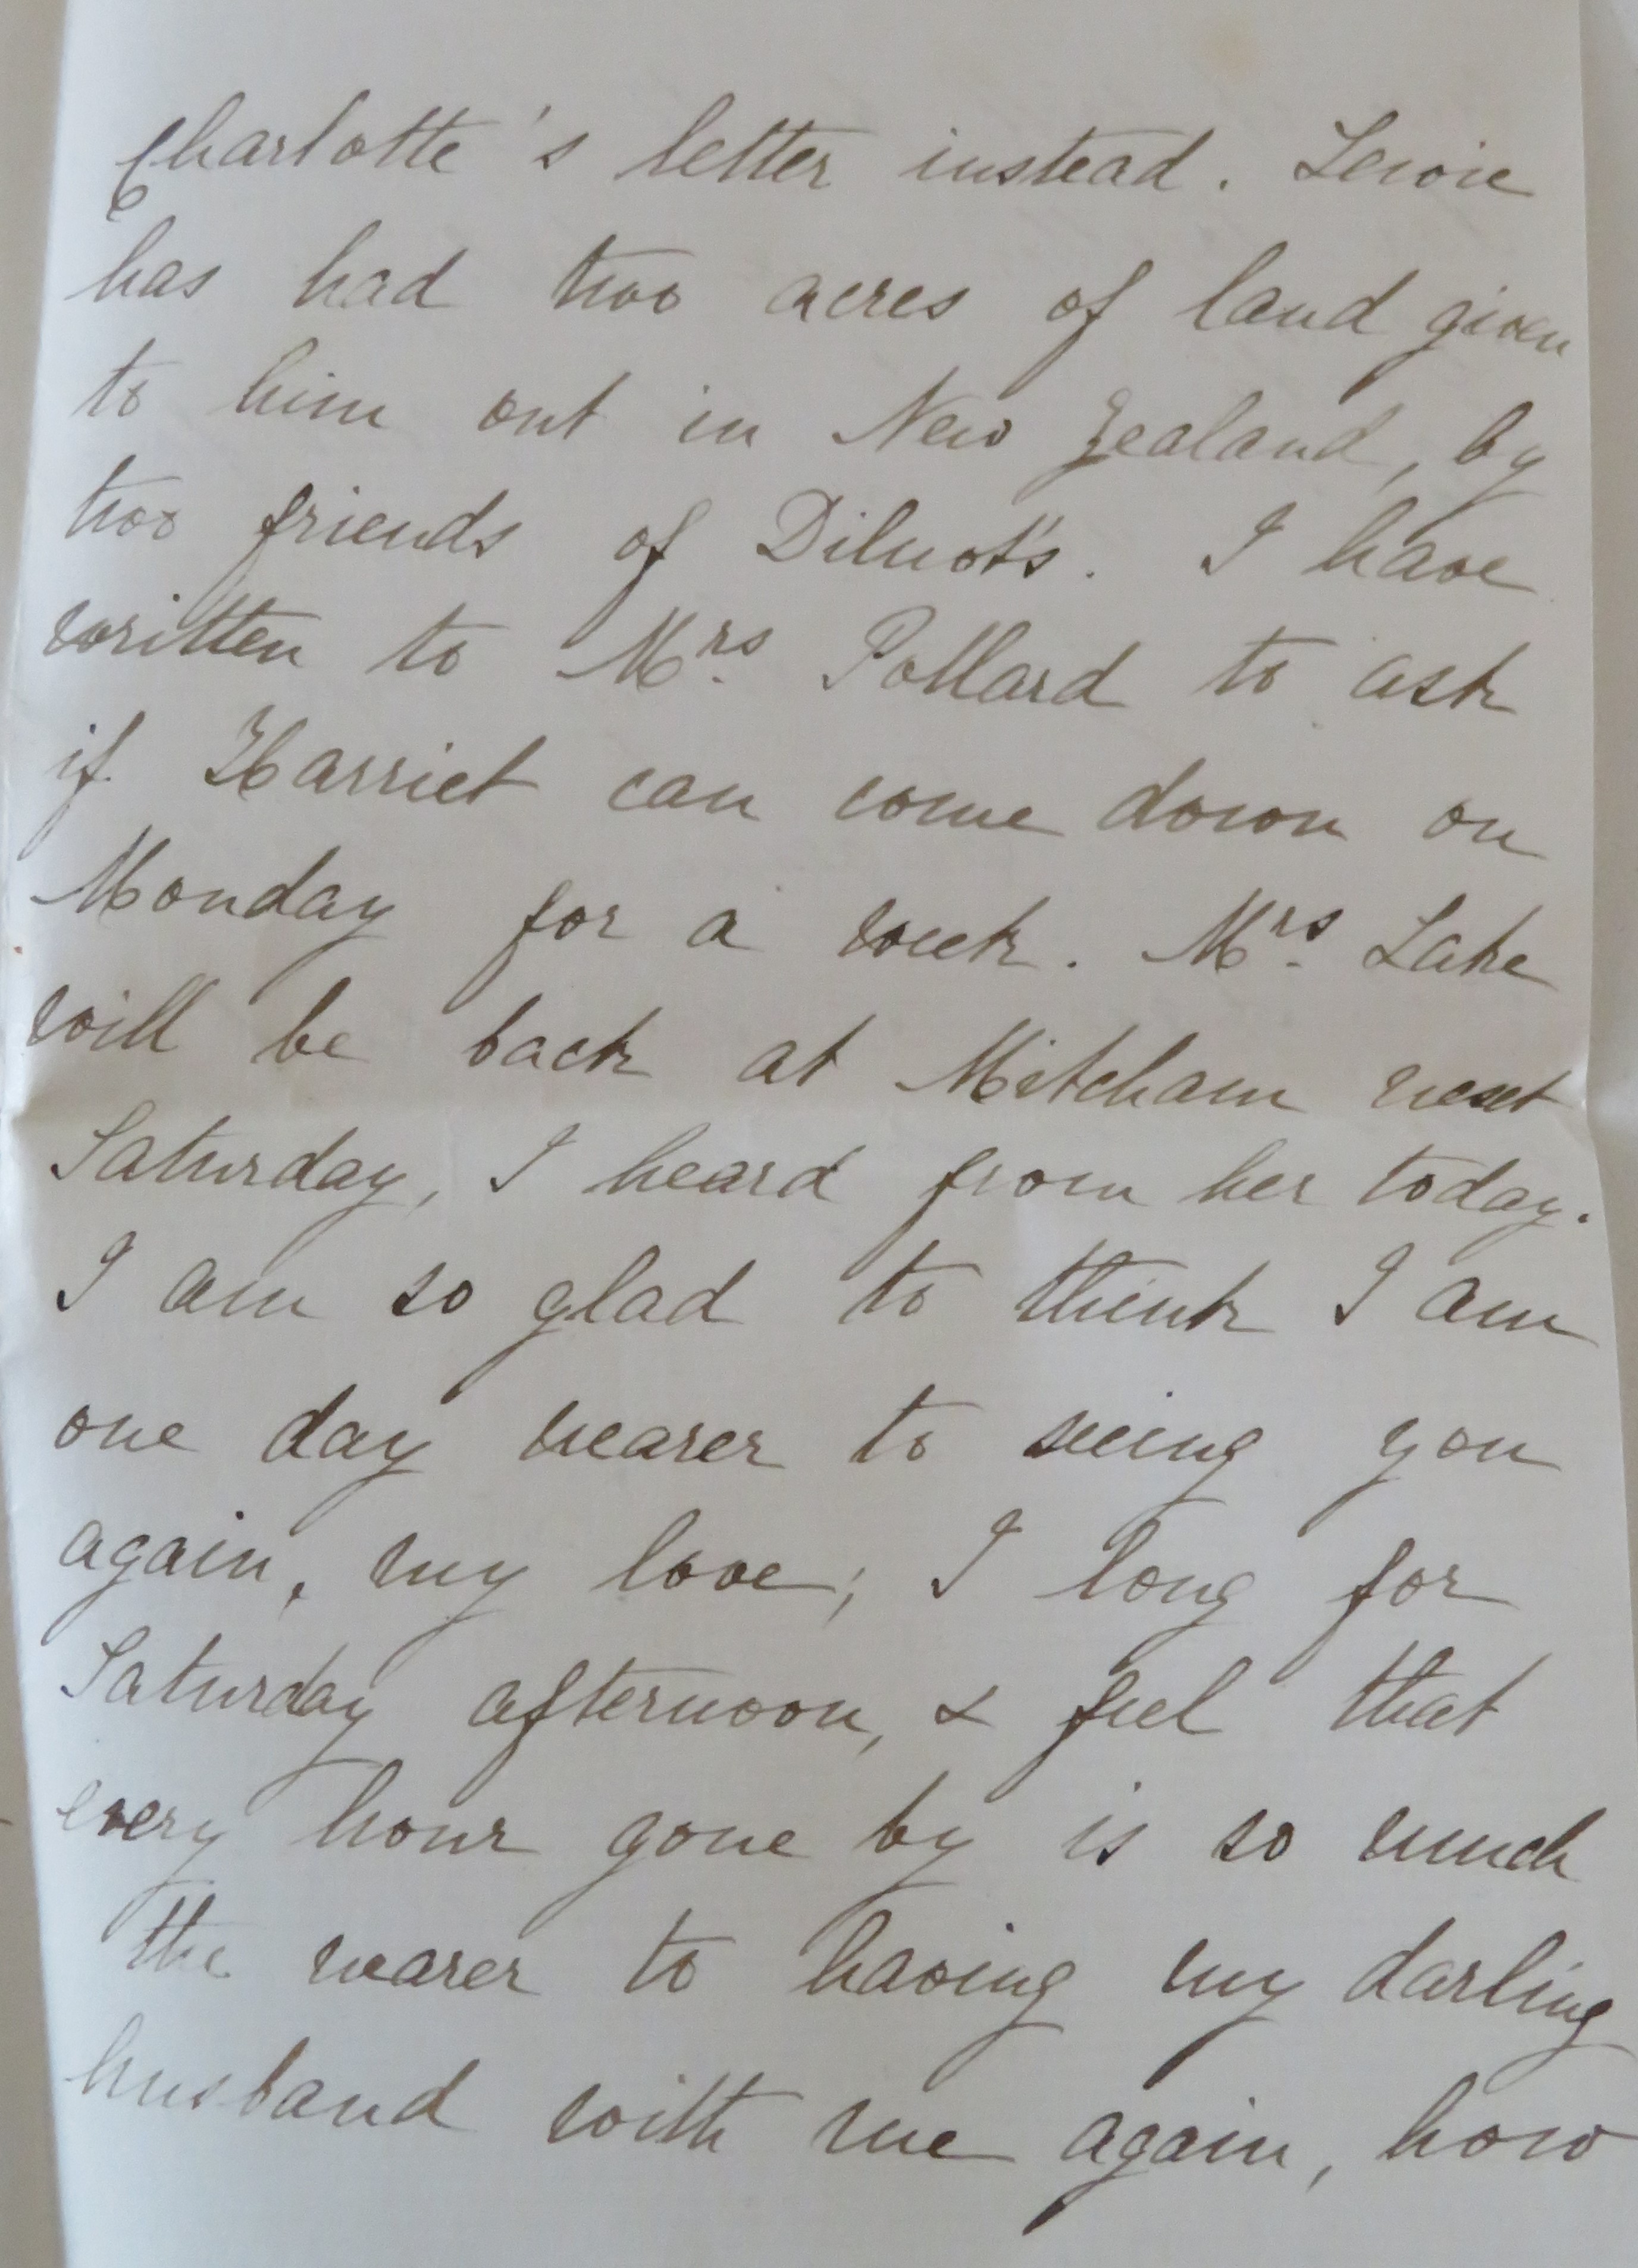 Charlotte's letter instead. Lewie
has had two acres of land given
to him out in New Zealand, by
two friends of Dilnot's. I have
written to Mrs. Pollard to ask
if Harriet can come down on
Monday for a week. Mrs. Lake
will be back at Mitcham next
Saturday, I heard from her today.
I am so glad to think I am
one day nearer to seeing you
again, my love; I long for
Saturday afternoon, & feel that
every hour gone by is so much
the nearer to having my darling
husband with me again, how